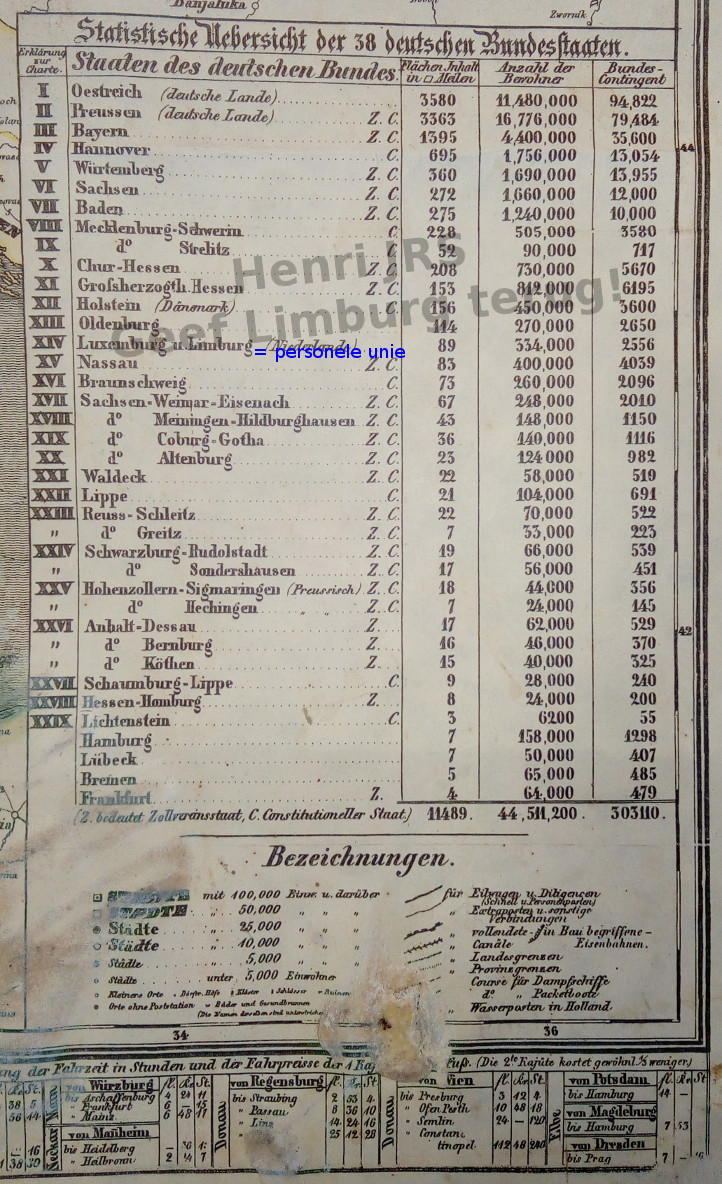 Banjaluka
Zwornik
Statistische Uebersicht der 38 deutschen Bundesstaaten.
Erklärung zur Charte. Staaten des deutschen Bundes. Flächen Inhalt in □ Meilen Anzahl der Bewohner Bundes-Contingent
I Oestreich (deutsche Lande) 3580 11,480,000 94,822
II Preussen (deutsche Lande) Z. C. 3363 16,776,000 79,484
III Bayern Z. C. 1395 4,400,000 35,600
IV Hannover C. 695 1,756,000 13,054
V Würtemberg Z. C. 360 1,690,000 13,955
VI Sachsen Z. C. 272 1,660,000 12,000
VII Baden Z. C. 275 1,240,000 10,000
VIIII Mecklenburg-Schwerin C. 228 505,000 3580
IX dº Strelitz C 52 90,000 717
X Chur-Hessen Z. C. 208 730,000 5670
XI Grofsherzogth. Hessen Z. C. 153 812,000 6195
XII Holstein (Dänemark) C. 156 450,000 3600
XIII Oldenburg 114 270,000 2650
XIV Luxemburg u. Limburg (Niederlande) 89 334,000 2556
= personele unie
XV Nassau Z. C. 83 400,000 4039
XVI Braunschweig C. 73 260,000 2096
XVII Sachsen-Weimar-Eisenach Z. C. 67 248,000 2010
XVIII dº Meiningen-Hildburghausen Z. C. 43 148,000 1150
XIX dº Coburg-Gotha Z. C. 36 140,000 1116
XX dº Altenburg Z. C. 23 124000 982
XXI Waldeck Z. C. 22 58,000 519
XXII Lippe C. 21 104,000 691
XXIII Reuss-Schleitz Z. C. 22 70,000 522
" dº Greitz Z. C. 7 33,000 223
XXIV Schwarzburg-Rudolstadt Z. C. 19 66,000 539
" dº Sondershausen Z. C. 17 56,000 451
XXV Hohenzollern-Sigmaringen (Preussisch) Z. C. 18 44,000 356
" dº Hechingen Z. C. 7 24,000 145
XXVI Anhalt-Dessau Z. 17 62,000 529
" dº Bernburg Z. 16 46,000 370
" dº Köthen Z. 15 40,000 325
XXVII Schaumburg-Lippe C. 9 28,000 240
XXVIII Hessen-Homburg Z. 8 24,000 200
XXIX Lichtenstein C. 3 6200 55
Hamburg 7 158,000 1298
Lübeck 7 50,000 407
Bremen 5 65,000 485
Frankfurt Z. 4 64,000 479
(Z. bedeutet Zollvereinsstaat, C. Constitutioneller Staat.) 11489. 44,511,200. 303110.
Henri JRS
Geef Limburg terug!
44
42
Bezeichnungen.
STAEDTE mit 100,000 Einw. u. darüber
STÆDTE " 50,000 " " "
Städte " 25,000 " " "
Städte " 10,000 " " "
Städte " 5,000 " " "
Städte unter 5,000 Einwohner
Kleinere Orte Dörfer, Höfe Klöster Schlösser Ruinen
Orte ohne Poststation Bäder und Gesundbrunnen
(Die Namen derselben sind unterstrichen
für Eilwagen u. Diligencen
(Schnell u. Personenposten)
" Extraposten u. sonstige Verbindungen
" vollendete in Bau begriffene-
" Canäle Eisenbahnen.
" Landesgrenzen
" Provinzgrenzen
" Course für Dampfschiffe
dº " Packetboote
" Wasserposten in Holland.
34 36
der Fahrzeit in Stunden und der Fahrpreisse der 1 Kaj
(Die 2te Kajüte kostet gewöhnl. ½ weniger)
Main
von Würzburg fl. Kr. St.
bis Aschaffenburg 4 24 11
" Frankfurt 6
" Mainz 6 48 17
Neckar
von Manheim
bis Heidelberg
" Heilbronn 2
Donau
von Regensburg fl. Kr. St.
bis Straubing 2 53 4
" Passau 8 36 10
" Linz 14 24 16
25 12 28
Donau
von Wien fl. Kr. St.
bis Presburg 3 12 4
" Ofen Pesth 10 48 18
" Semlin 24 — 120
" Constantinopel 112 48 240
Elbe
von Potsdam fl. Kr. St.
bis Hamburg 14 —
von Magdeburg
bis Hamburg 7 53
von Dresden
bis Prag 7 —